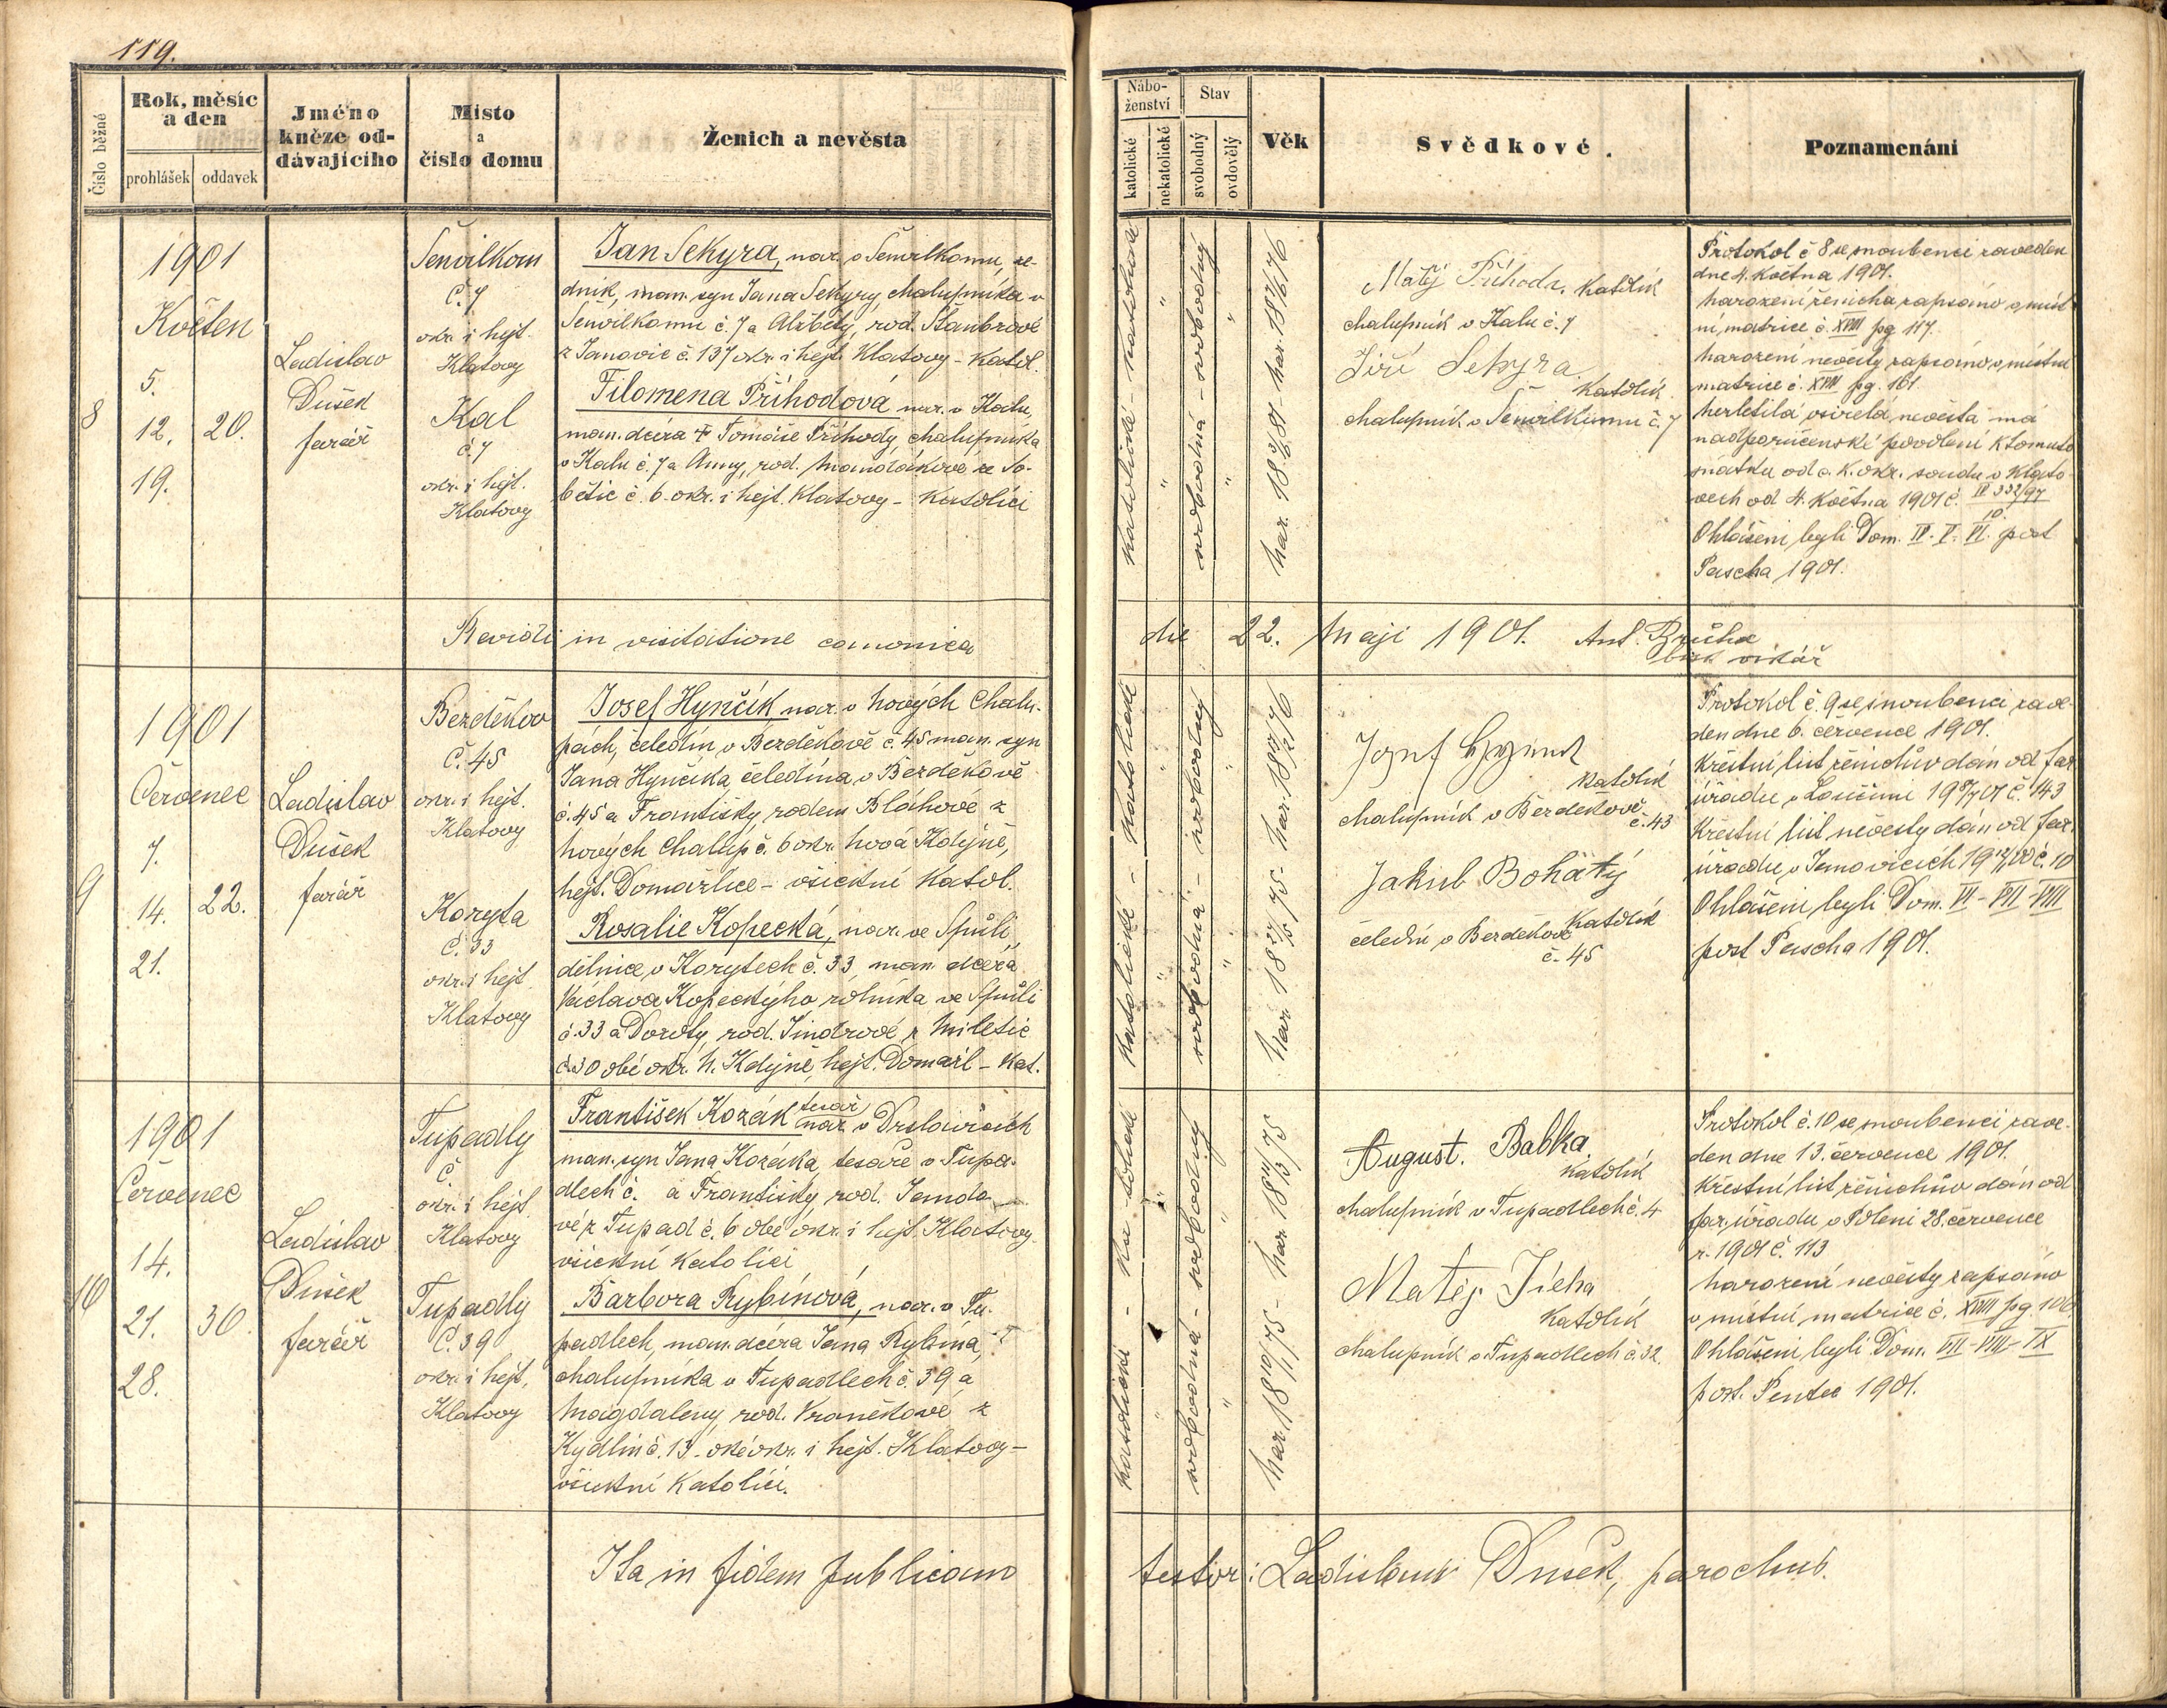 119.
Číslo běžné
Rok, měsíc
a den
prohlášek
oddavek
Jméno
kněze od-
dávajícího
Místo
a
číslo domu
Ženich a nevěsta
Nábo-
ženství
katolické
nekatolické
Stav
svobodný
ovdovělý
Věk
Svědkové.
Poznamenání
8
1901
Květen
5.
12. 20.
19.
Ladislav
Dušek
farář
č. 7
okr. i hejt.
Klatovy
Kal
č. 7
okr. i hejt.
Klatovy
Jan Sekyra, nar. v
dník, man. syn Jana Sekyry, chalupníka v
č. 7 a Alžběty, rod.
z Janovic č. 137 okr. i hejt. Klatovy - katol.
Filomena Příhodová nar. v Kalu,
man. dcera † Tomáše Příhody, chalupníka
v Kalu č. 7 a Anny, rod. ze So-
bětic č. 6. okr. i hejt. Klatovy - katolíci
katolické - katolické
svobodná - svobodný
Matěj Příhoda. katolík
chalupník v Kalu č. 7
Jiří Sekyra
katolík
chalupník v č. 7
Protokol č 8 se snoubenci zaveden
dne 4. května 1901.
Narození ženicha zapsáno v míst-
ní matrice č. XVIII pg 117.
Narození nevěsty zapsáno v místní
matrice č. XVIII pg. 161.
Nezletilá osiřelá nevěsta má
nadporučenské povolení k tomuto
sňatku od c. k. okr. soudu v Klato-
vech od 4. května 1901 č.
Ohlášeni byli Dom. IV. V. VI. post
Pascha 1901.
Revidi in visitatione canonica die 22. Maji 1901. Ant. Brůha
bisk vikář
9
1901
Červenec
7.
14. 22.
21.
Ladislav
Dušek
farář
Bezděkov
Č. 45
okr. i hejt.
Klatovy
Koryta
č. 33
okr. i hejt
Klatovy
Josef Hynčík nar. v Nových Chalu-
pách, čeledín v Bezděkově č. 45 man. syn
Jana Hynčíka, čeledína v Bezděkově
č. 45 a Františky rodem Bláhové z
Nových Chalup č. 6 okr. Nová Kdýně,
hejt. Domažlice - všichni katol.
Rosalie Kopecká, nar. ve Spůli
dělnice v Korytech č. 33, man. dcera
Václava Kopeckýho rolníka ve Spůli
č. 33 a Doroty, rod. Jindrové z Miletic
č. 30 obé okr. N. Kdýně, hejt. Domažl - kat.
katolické - katolické
svobodná - svobodný
katolík
chalupník v Bezděkově
č. 43
Jakub Bohatý
katolík
čeledín v Bezděkově
č. 45
Protokol č. 9 se snoubenci zave-
den dne 6. července 1901.
Křestní list ženichův dán od far.
úřadu v Loučimi č. 143
Křestní list nevěsty dán od far.
úřadu v Janovicích č. 10
Ohlášeni byli Dom. VI - VII - VIII
post Pascha 1901.
10
1901
Červenec
14.
21. 30.
28.
Ladislav
Dušek
farář
Tupadly
č.
okr. i hejt
Klatovy
Tupadly
Č. 39
okr. i hejt.
Klatovy
František Kozák tesař nar. v Drslavicích
man. syn Jana Kozáka, tesaře v Tupa-
dlech č. a Františky, rod. Janda
vé z Tupad č. 6 obé okr. i hejt. Klatovy
všichni katolíci
Barbora Rybínová, nar. v Tu-
padlech, man. dcera Jana Rybína, †
chalupníka v Tupadlech č. 39 a
Magdaleny, rod. z
Kydlin č. 13. okr. i hejt. Klatovy -
všichni katolíci.
katolické - katolické
svobodná - svobodný
August. Babka
katolík
chalupník v Tupadlech č. 4
Matěj Jícha
katolík
chalupník v Tupadlech č. 32.
Protokol č. 10 se snoubenci zave-
den dne 13. července 1901.
Křestní list ženichův dán od
far. úřadu v Poleni 28. července
r. 1901 č. 113
Narození nevěsty zapsáno
v místní matrice č. XVIII pg 106
Ohlášeni byli Dom. VII - VIII - IX
post. Pentec 1901.
Ita in fidem publicam testor: Ladislaus Dušek, parochus.